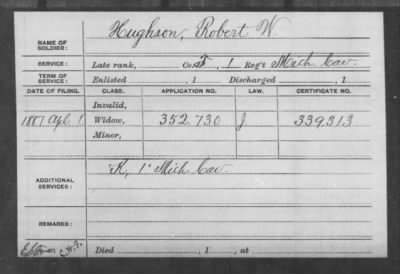 NAME OF SOLDIER: Hughson, Robert W.
SERVICE: Late rank, Co. F, 1 Reg't Mich Cav.
TERM OF SERVICE: Enlisted , 1 Discharged , 1
DATE OF FILING. CLASS. APPLICATION NO. LAW. CERTIFICATE NO.
Invalid,
1887 Apl. 1 Widow, 352.730 J. 339313
Minor,
ADDITIONAL SERVICES: K, 1" Mich Cav.
REMARKS:
Died , 1 , at